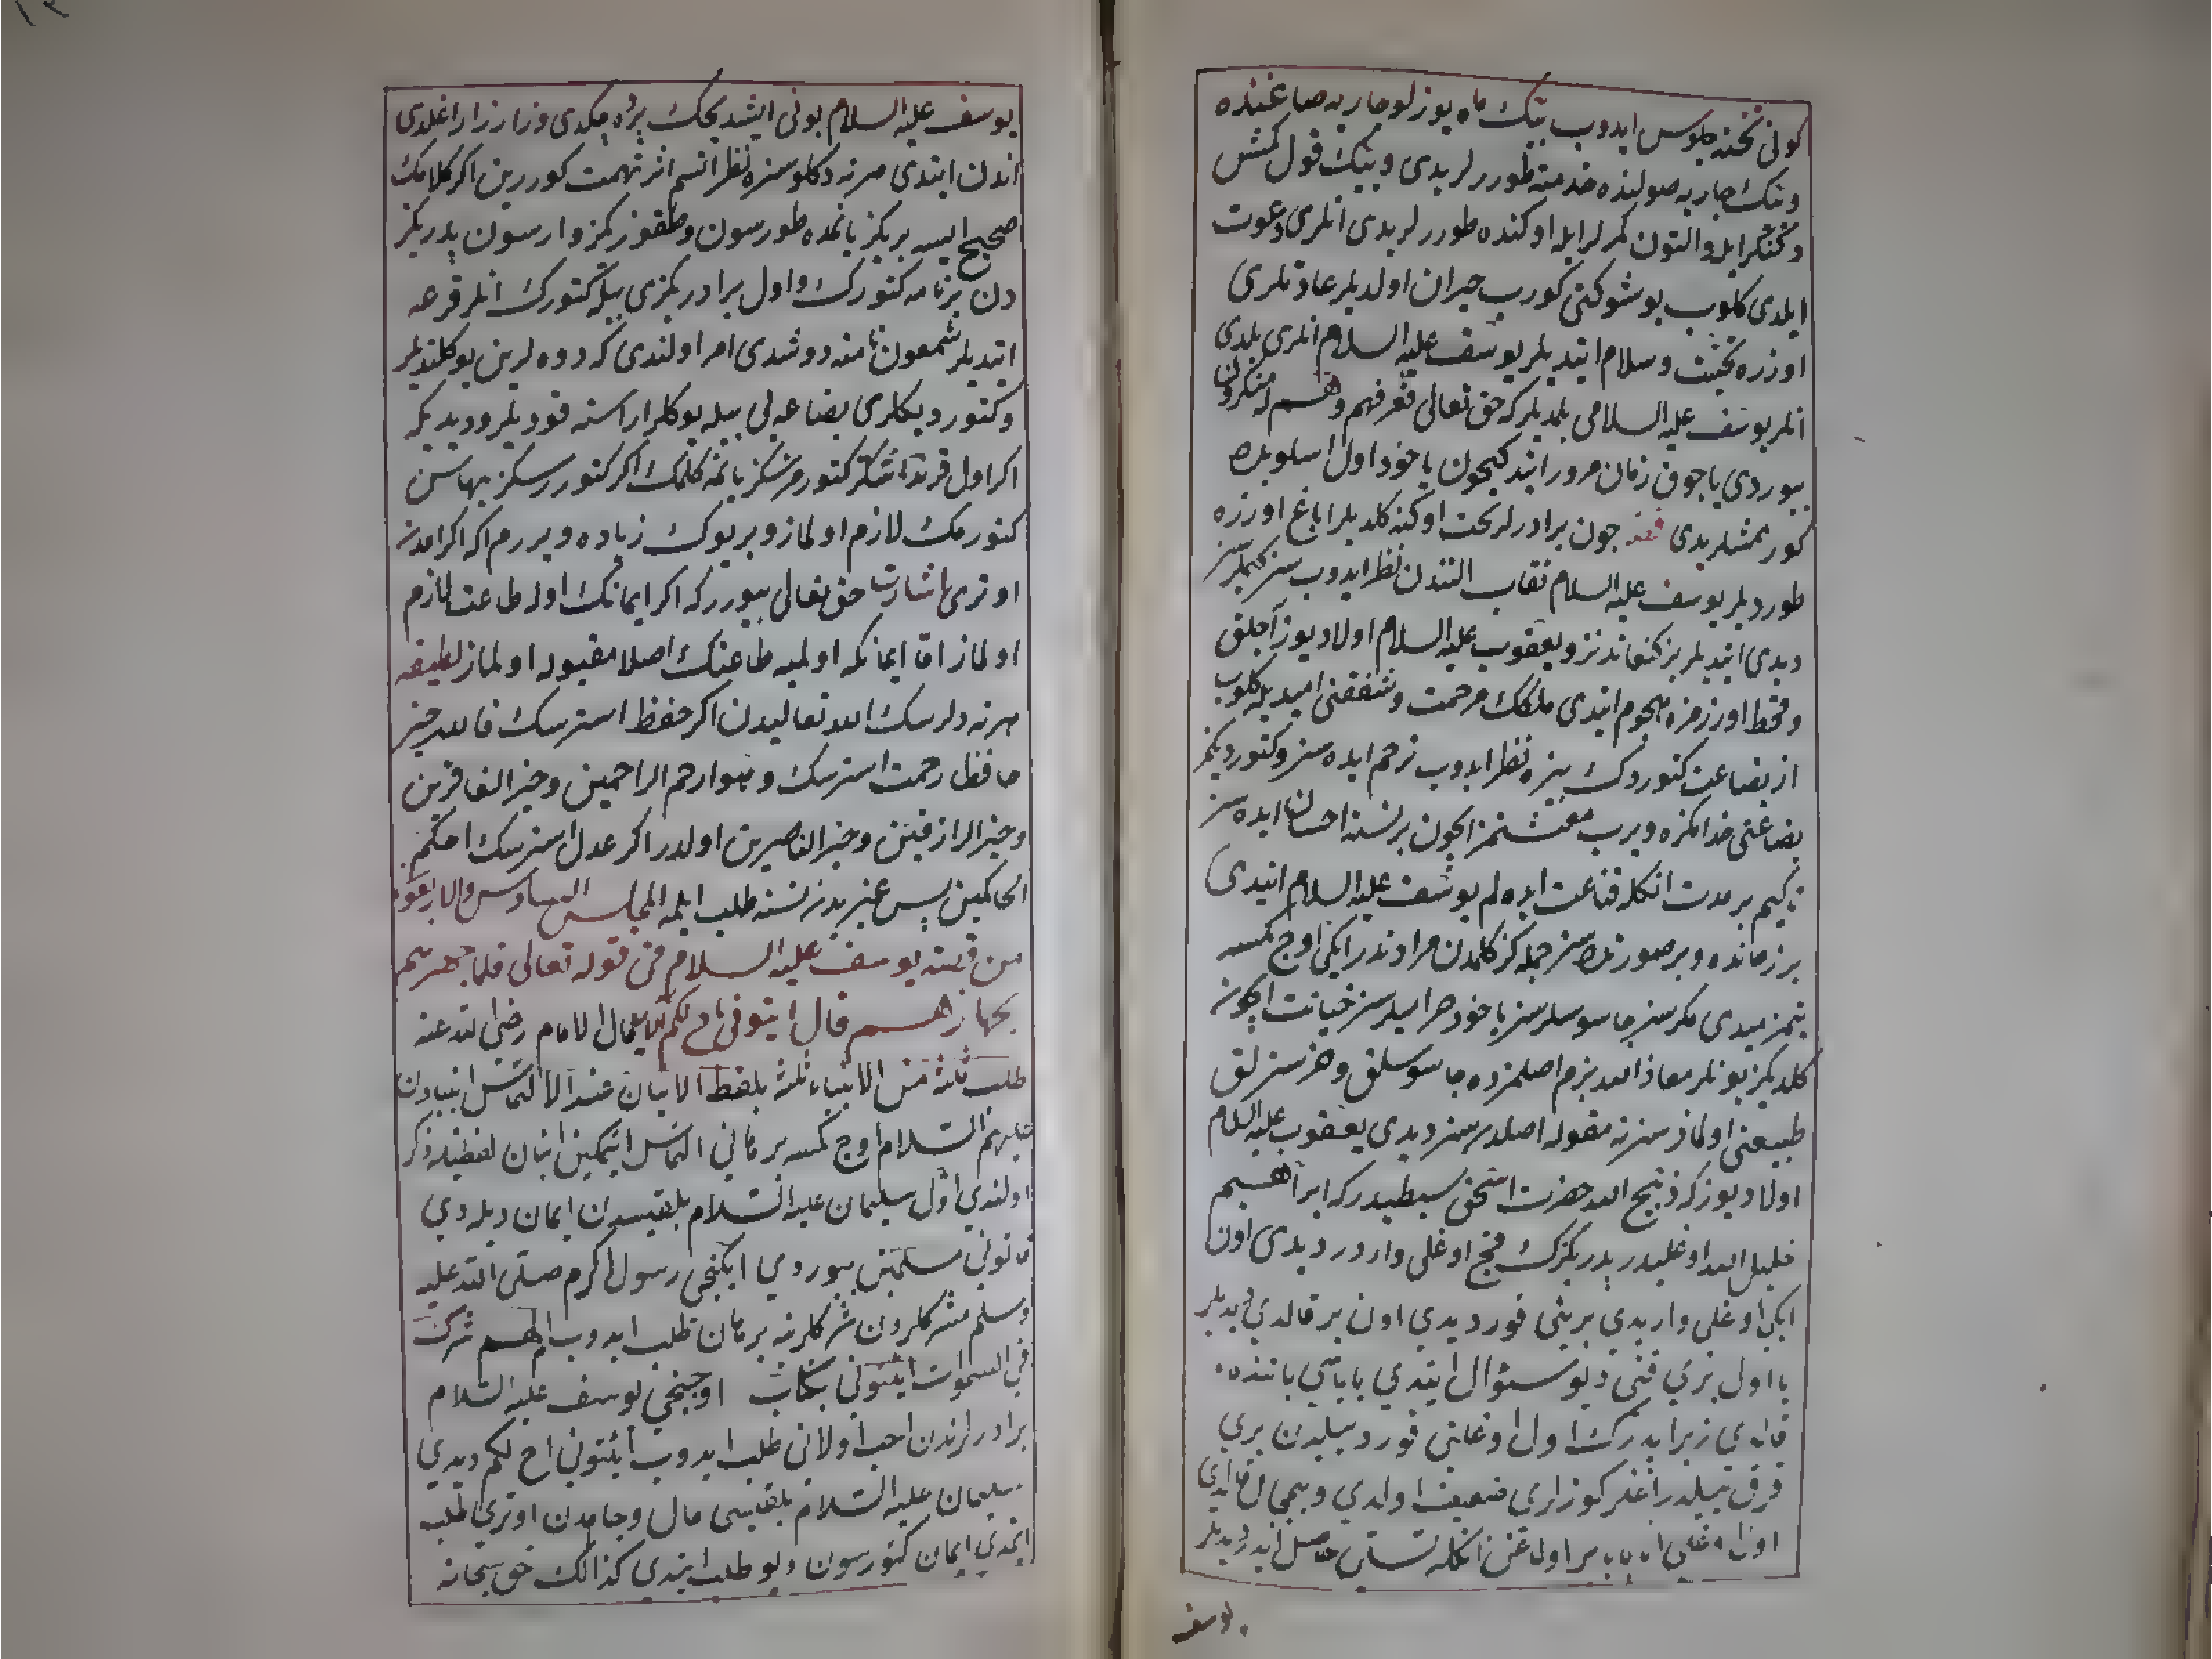 كونى تخته جلوس ايدوب بيك ماه يوزلو جاريه صاغنده
وبيك جاريه صولنده خدمته طوررلريدى وبيك قول كمش
ايله والتون كمرلر ايله اوكنده طوررلريدى انلرى دعوت
ايلدى كلوب بو شوكتى كورب حيران اولديلر عادتلرى
اوزره تحيت وسلام ايتديلر يوسف عليه السلام انلرى بلدى
انلر يوسف عليه السلامى بلمديلر كه حق تعالى فعرفهم وهم له منكرون
بيوردى يا چوق زمان مرور ايتدكيچون ياخود اول اسلوبده
كورمشلريدى چون برادرلر تخت اوكنه كلديلر اياغ اوزره
طورديلر يوسف عليه السلام نقاب التندن نظر ايدوب سز كيملرسز
ديدى ايتديلر بز كنعاندنز ويعقوب عليه السلام اولاديوز آجلق
وقحط اوزرمزه هجوم ايتدى ملكك مرحمت وشفقتى اميديله كلوب
از بضاعت كتوردك بيزه نظر ايدوب ترحم ايده سز وكتورديكمز
بضاعتى خدامكزه ويرب معيشتمز ايچون بر نسنه احسان ايده سز
بر مدت انكله قناعت ايده لم يوسف عليه السلام ايتدى
بر زمانده وبر صورتده سز جمله كز كلمدن مراد ندر ايكى اوچ كمسه
يتمزميدى مكر سز جاسوسلرسز ياخود حراميلرسز خيانت ايچون
كلديكز بونلر معاذ الله بزم اصلمزده جاسوسلق وخرسزلق
طبيعتى اولماز سز نه مقوله اصلدرسز ديدى يعقوب عليه السلام
اولاديوز كه ذبيح الله حضرت اسحق سبطيدر كه ابراهيم
خليل الله اوغليدر پدريكزك قچ اوغلى واردر ديدى اون
ايكى اوغلى واريدى برينى قورد يدى اون بر قالدى ديديلر
يا اول برى قنى ديو سؤال ايتدى باباسى ياننده
قالدى زيرا پدرك اول اوغلنى قورد ييليدن برى
قرق ييلدر اغلر كوزلرى ضعيف اولدى وبيمجال قالدى
اول اوغلى انا بابا بر اولدغى انكله تسلى حاصل ايدر ديديلر
يوسف
يوسف عليه السلام بونى ايشيدجك بر آه چكدى وزار زار اغلدى
اندن ايتدى هر نه دكلو سزه نظر اتسم اثر تهمت كوررين اكر كلامك
صحيح ايسه بريكز يانمده طورسون وطقوزكز وارسون پدريكز
دن بر نامه كتورك واول برادريكزى بيله كتورك انلر قرعه
ايتديلر شمعون نامنه دوشدى امر اولندى كه دوه لرين يوكلنديلر
وكتوردكلرى بضاعه لى بيله يوكلر اراسنه قوديلر وديديكه
اكر اول قرنداشكز كتورمزسكز يانمه كلمك اكر كتوررسكز بهاسن
كتورمك لازم اولماز وبر يوك زياده ويررم اكا اكرامدن
اوترى اشارت حق تعالى بيورر كه اكر ايمانك اوله طاعت لازم
اولماز اما ايمانكه اولميه طاعتك اصلا مقبول اولماز لطيفه
هر نه دلرسك الله تعاليدن اكر حفظ استرسك فالله خير
حافظا رحمت استرسك وهو ارحم الراحمين وخير الغافرين
وخير الرازقين وخير الناصرين اولدر اكر عدل استرسك احكم
الحاكمين پس غيريدن نسنه طلب ايلمه المجلس السادس والاربعون
من قصة يوسف عليه السلام فى قوله تعالى فلما جهزهم
بجهازهم قال ائتونى باخ لكم قال الامام رضى الله عنه
طلب ثلثة من الانبياء ثلثة بلفظ الاتيان عند الالتماس انبيادن
عليهم السلام اوچ كمسه بر مانى التماس ايتمكين اتيان لفظيله ذكر
اولندى اول سليمان عليه السلام بلقيسدن ايمان ديله دى
فأتونى مسلمين بيوردى ايكنجى رسول اكرم صلى الله عليه
وسلم مشركلردن شركلرنه برهان طلب ايدوب ام لهم شرك
فى السموات ايتونى بكتاب اوچنجى يوسف عليه السلام
برادرلرندن احب اولانى طلب ايدوب ائتونى باخ لكم ديدى
سليمان عليه السلام بلقيسى مال وجاهدن اوترى طلب
ايتمدى ايمان كتورسون ديو طلب ايتدى كذالك حق سبحانه